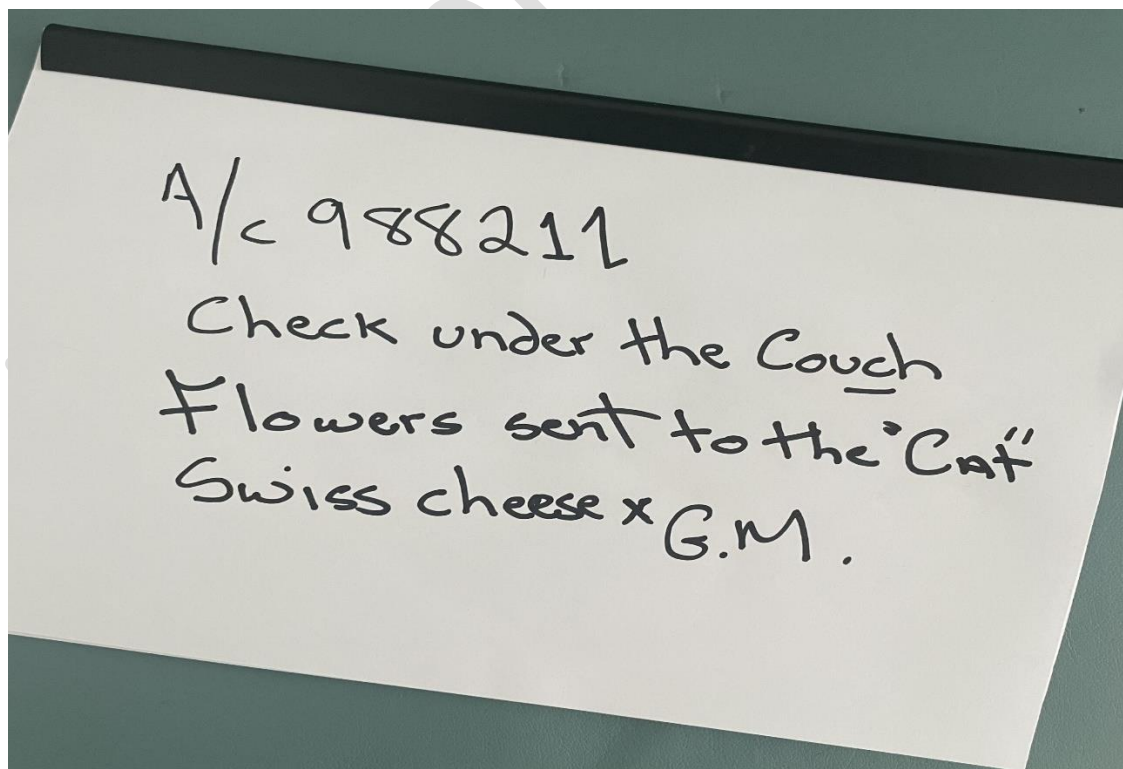 A/c 988211
Check under the Couch
Flowers sent to the "Cat"
Swiss cheese x G.M.